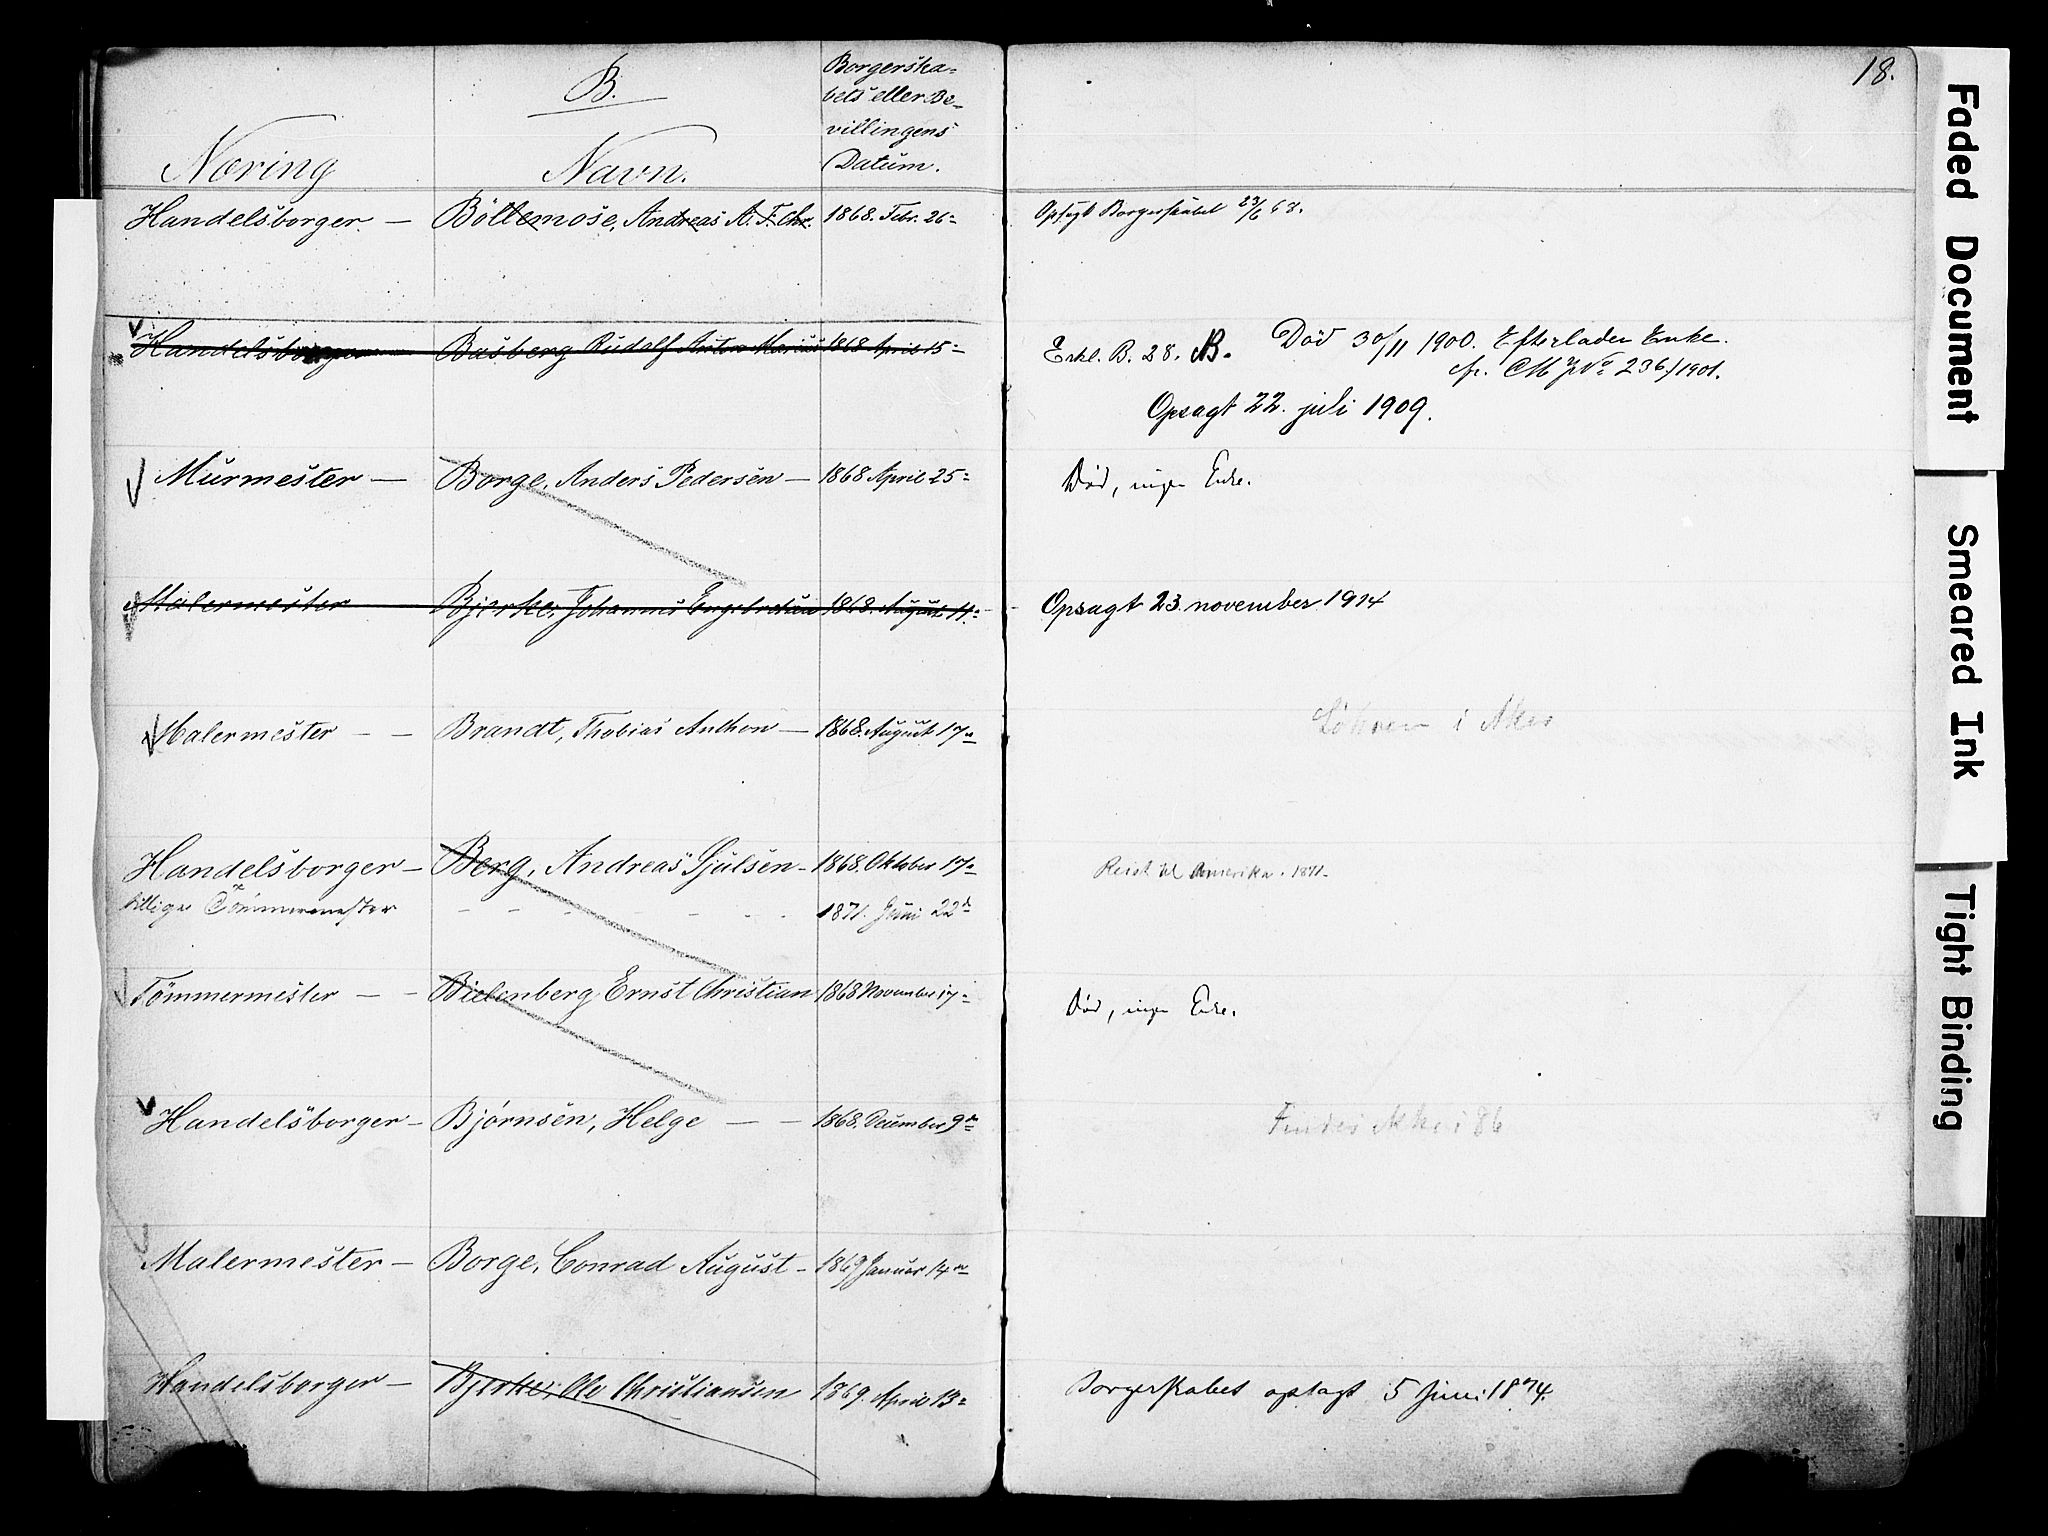 B.
Borgerska-
bets eller Be-
villingens
Datum.
Næring
Navn.
18.
Handelsborger. — Böllemose, Andreas A. F. Chr. 1868. Febr. 26-
Opsagt Borgerskabet 23/6 68.
Handelsborger Basberg Rudolf Anton Marius 1868 April 15-
Erkl. B. 28. B. Död 30/11 1900. Efterlader Enke.
cfr. CM JNo 236/1901.
Opsagt 22. juli 1909.
Murmester — Borge, Anders Pedersen — 1868 April 25-
Död, ingen Enke.
Malermester Bjerke, Johannes Engebretsen 1868. August 11-
Opsagt 23. november 1914
Malermester — — Brandt, Thobias Anthon — 1868. August 17-
i Aker
Handelsborger — Berg, Andreas Gjulsen - 1868. Oktober 17-
Reist til Amerika. 1871-
tillige Tömmermester - - - - - - 1871. Juni 22de
Tömmermester — — Bielenberg Ernst Christian 1868 November 17-
Död, ingen Enke.
Handelsborger — Bjørnsen, Helge — — 1868. December 9de
Findes ikke i 86
Malermester — Borge, Conrad August - 1869 Januar 14de
Handelsborger — Bjerke, Ole Christiansen 1869. April 13-
Borgerskabet opsagt 5 Juni 1874.
Faded Document
Smeared Ink
Tight Binding